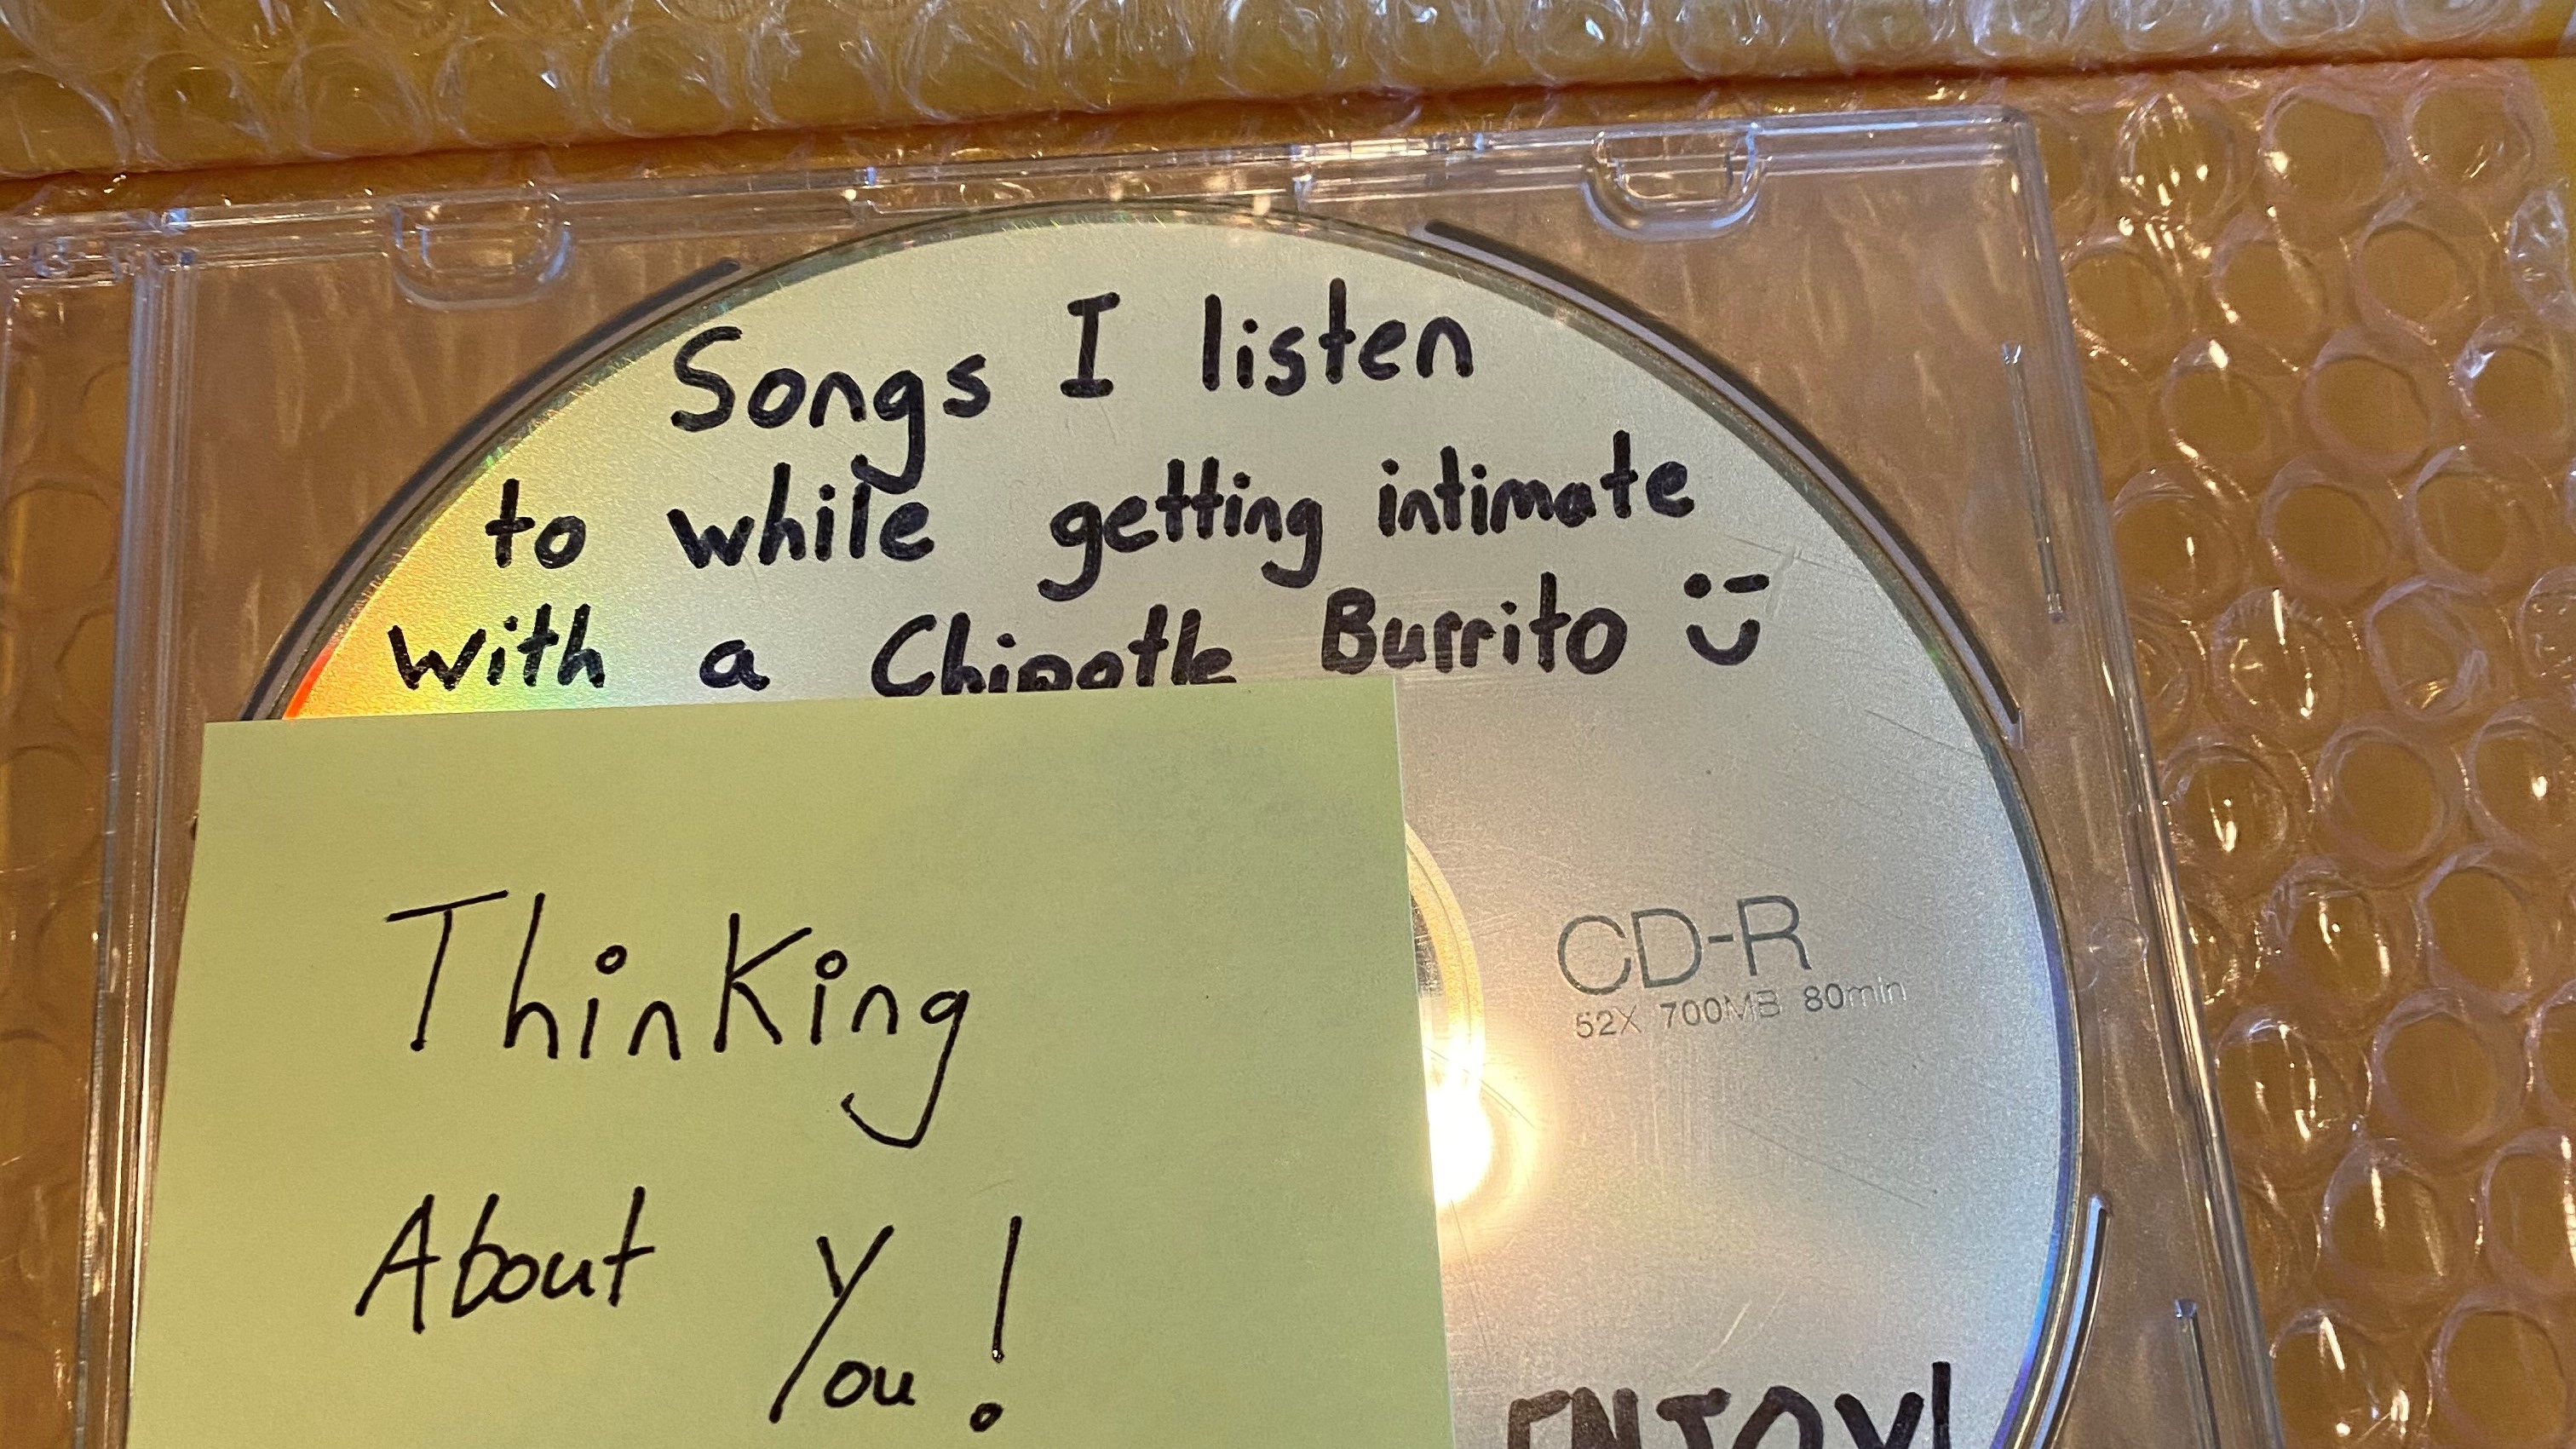 Songs I listen
to while getting intimate
with a Chipotle Burrito
Thinking
About You!
CD-R
52X 700MB 80min
ENJOY!